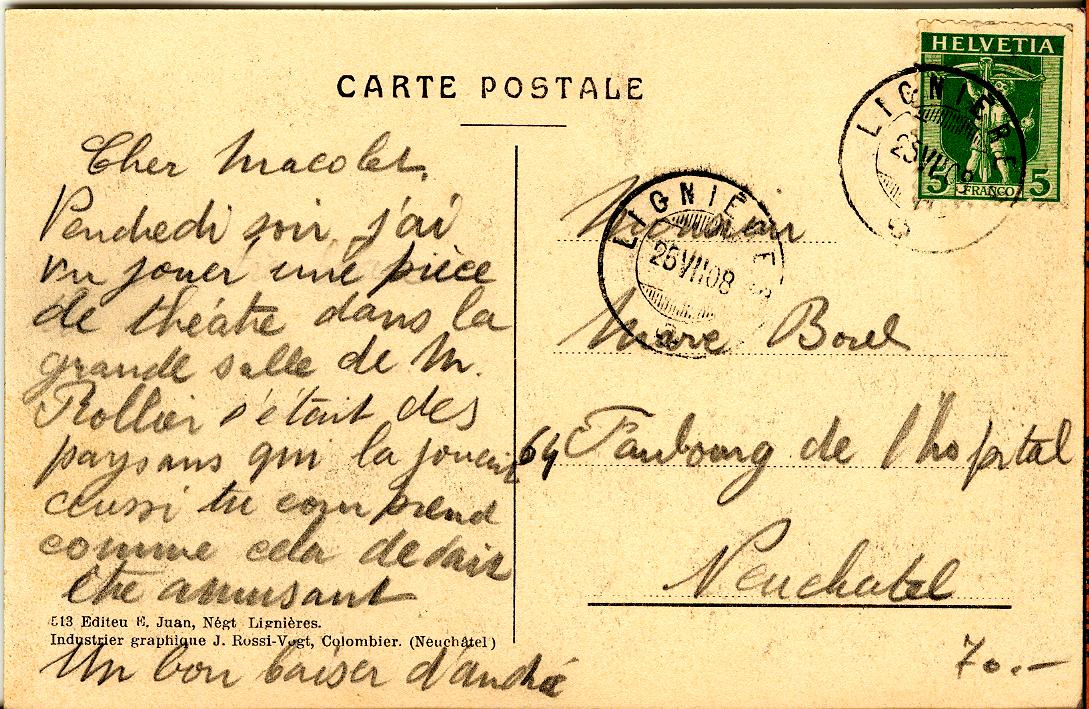 CARTE POSTALE
HELVETIA
5 FRANCO 5
LIGNIÈRE
25 VII 08
LIGNIÈRE
25 VII 08
Cher Macolet,
Vendredi soir j'ai
vu jouer une pièce
de théâtre dans la
grande salle de M.
Rollier s'était des
paysans qui la jouait
aussi tu comprend
comme cela dedait
être amusant
513 Editeu E. Juan, Négt Lignières.
Industrier graphique J. Rossi-Vogt, Colombier. (Neuchâtel)
Un bon baiser d'andré
Monsieur
Marc Borel
64 Faubourg de l'hopital
Neuchatel
70.—